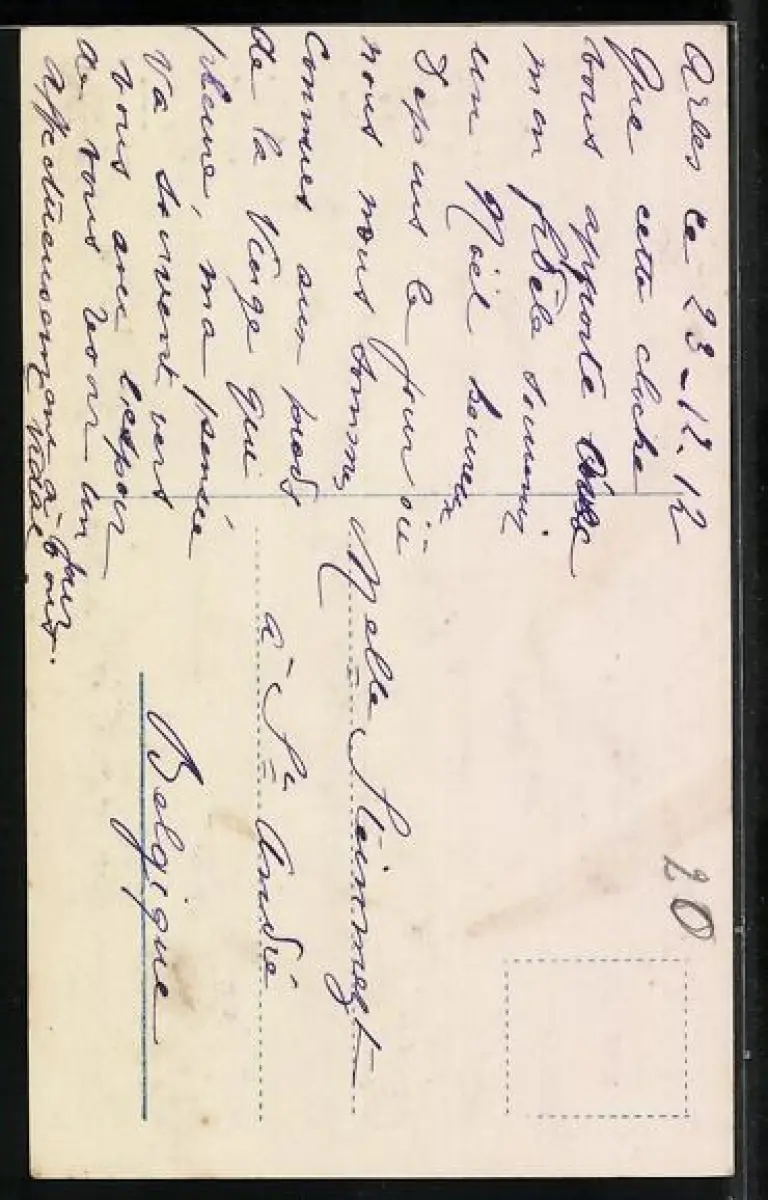 Arles ce 23-12.12
Que cette cloche
vous apporte avec
mon fidèle souvenir
un Noël heureux
Depuis le jour où
nous nous sommes
connues aux pieds
de la Vierge qui
pleure, ma pensée
va souvent vers
vous avec l'espoir
de vous revoir un jour
affectueusement à vous.
Melle Steinmetz
à St André
Belgique
20